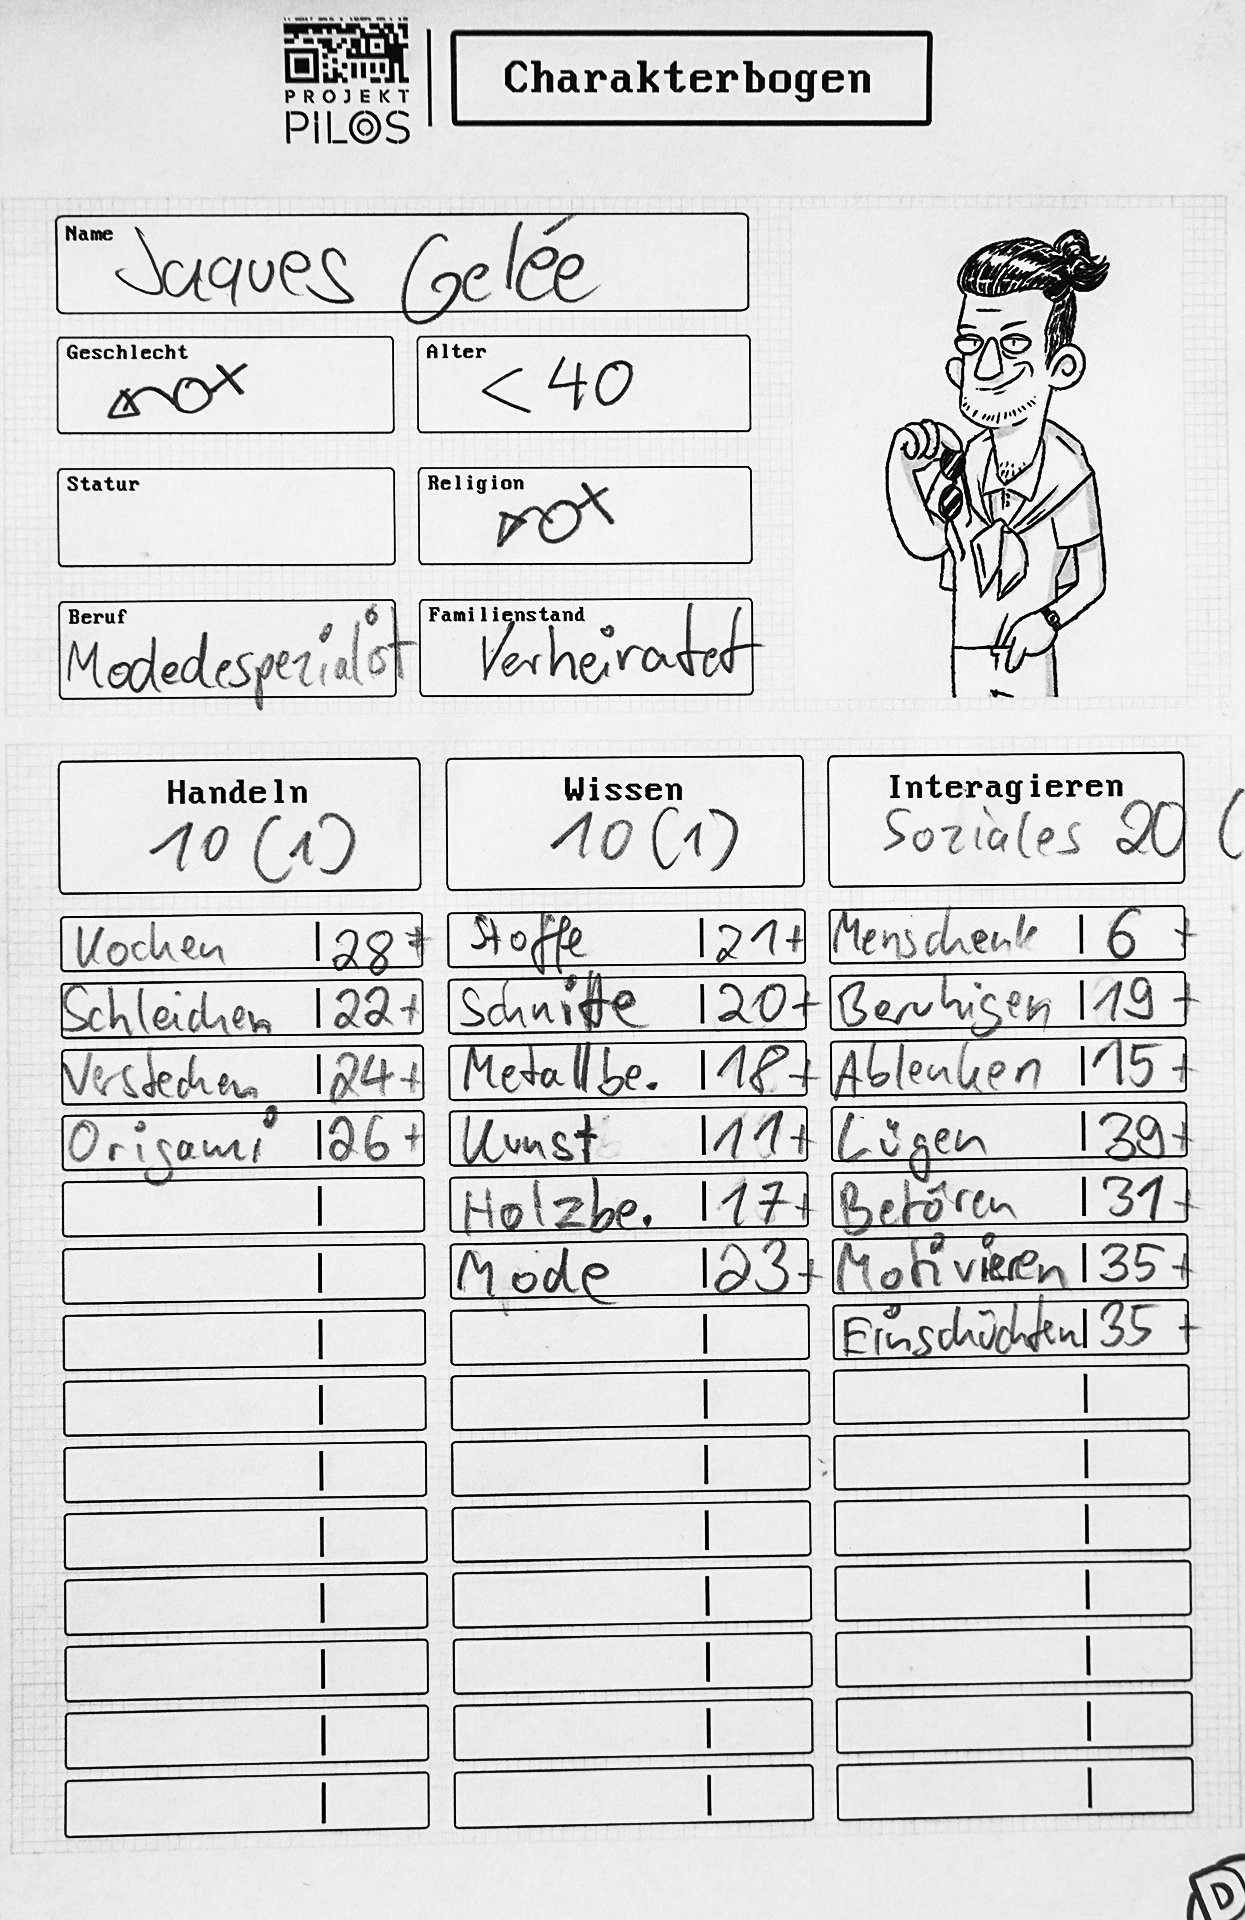 PROJEKT
PILOS
Charakterbogen
Name
Jaques Gelée
Geschlecht
Alter
< 40
Statur
Religion
Beruf
Modedespezialist
Familienstand
Verheiratet
Handeln
10 (1)
Wissen
10 (1)
Interagieren
Soziales 20 (
Kochen | 28+
Stoffe | 21+
Menschenk | 6 +
Schleichen | 22+
Schnitte | 20+
Beruhigen | 19+
Verstecken | 24+
Metallbe. | 18+
Ablenken | 15+
Origami | 26+
Kunst | 11+
Lügen | 39+
Holzbe. | 17+
Betören | 31+
Mode | 23+
Motivieren | 35+
Einschüchten | 35 +
D